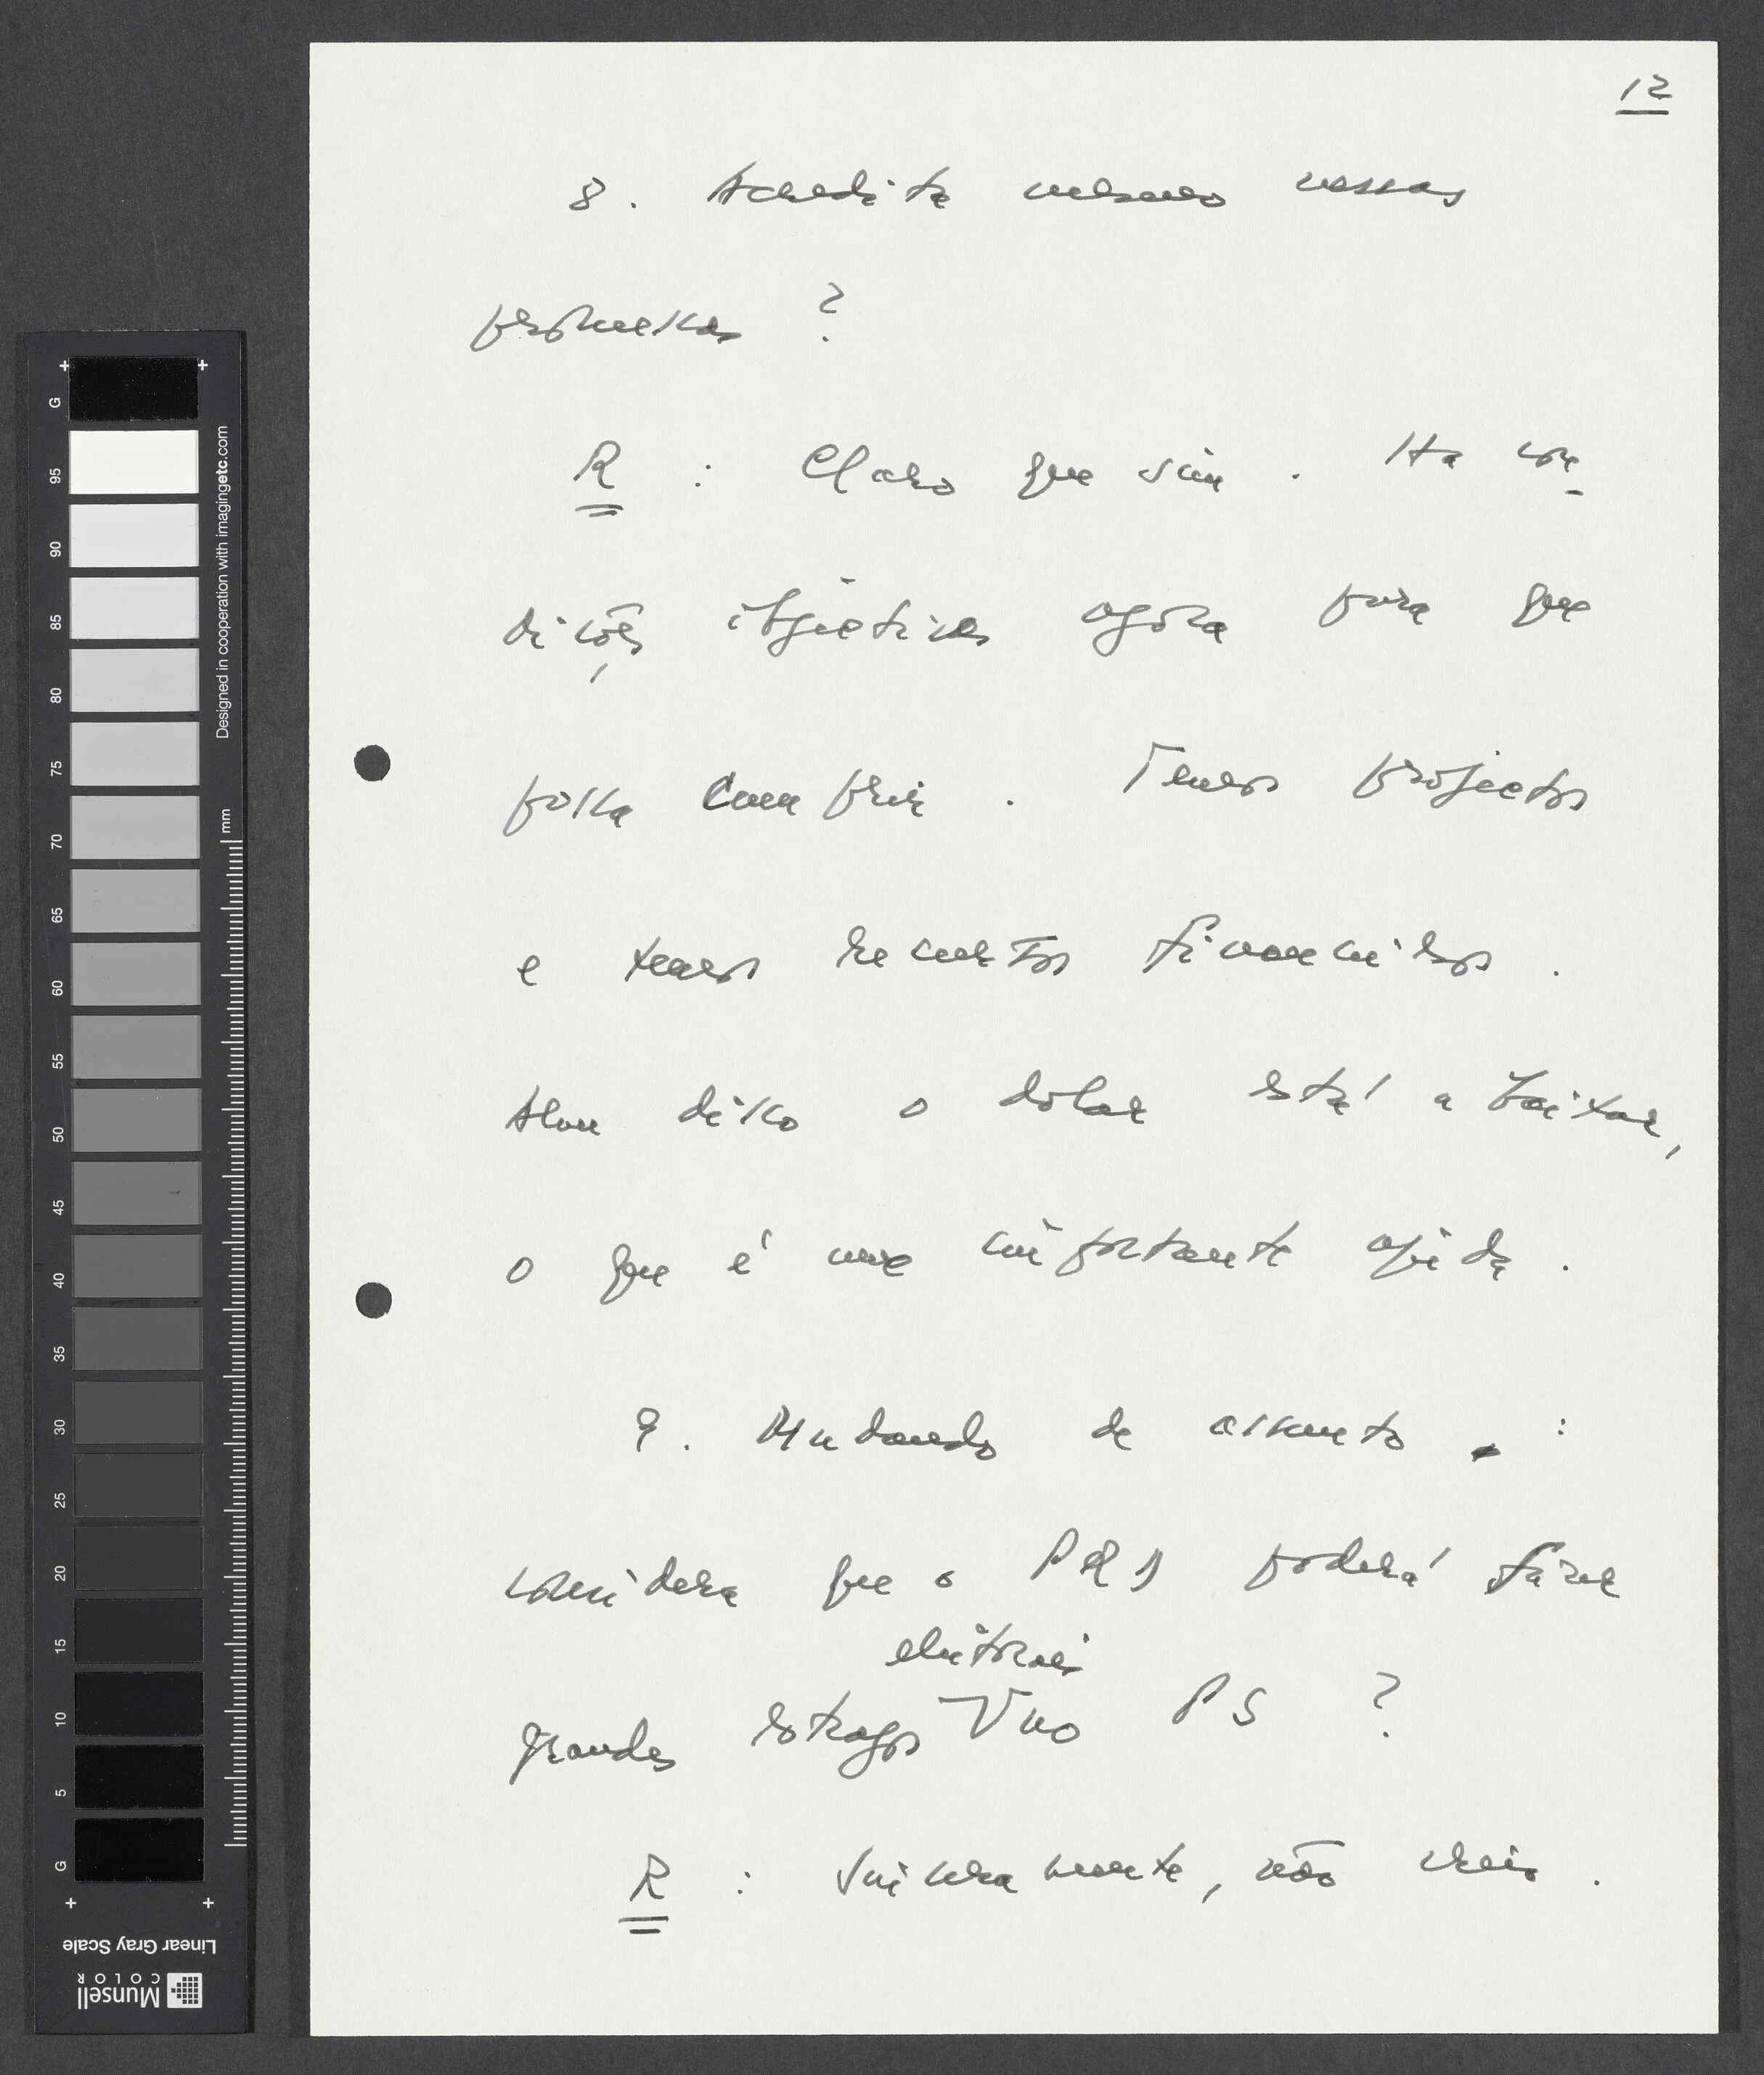 12
8. Acredita mesmo nessas
promessas ?
R : Claro que sim. Há con-
dições objectivas agora para que
possa cumprir. Temos projectos
e temos recursos financeiros.
Alem disso o dolar está a baixar,
o que é uma importante ajuda.
9. Mudando de assunto :
considera que o PRD poderá fazer
eleitorais
grandes estragos V no PS ?
R : Sinceramente, não creio.
G
95
90
85
80
75
70
65
60
55
50
45
40
35
30
25
20
15
10
5
G
Designed in cooperation with imagingetc.com
mm
Linear Gray Scale
Munsell
COLOR